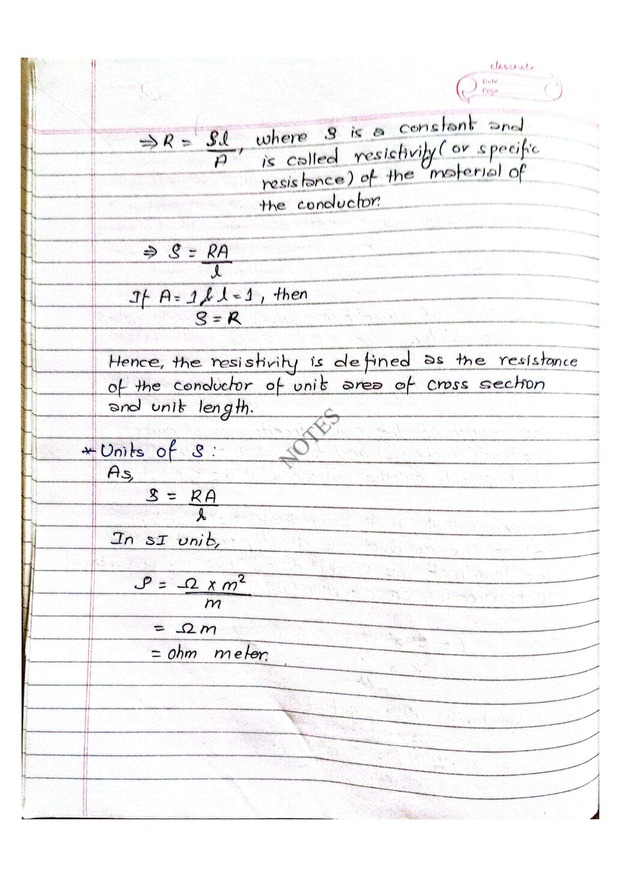 classmate
Date
Page
⇒ R = ρl/A, where ρ is a constant and
is called resistivity (or specific
resistance) of the material of
the conductor.
⇒ ρ = RA/l
If A = 1 & l = 1, then
ρ = R
Hence, the resistivity is defined as the resistance
of the conductor of unit area of cross section
and unit length.
NOTES
* Units of ρ :
As,
ρ = RA/l
In SI unit,
ρ = Ω × m²/m
= Ωm
= ohm meter.